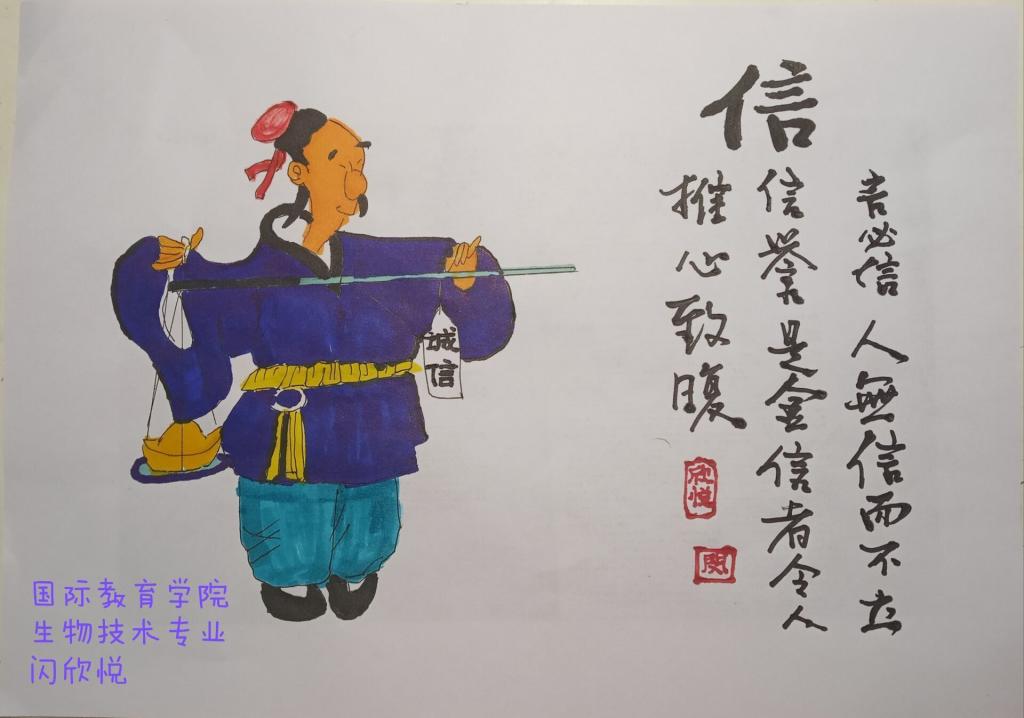 信
言必信 人無信而不立
信誉是金信者令人
推心致腹
欣悦
诚信
国际教育学院
生物技术专业
闪欣悦